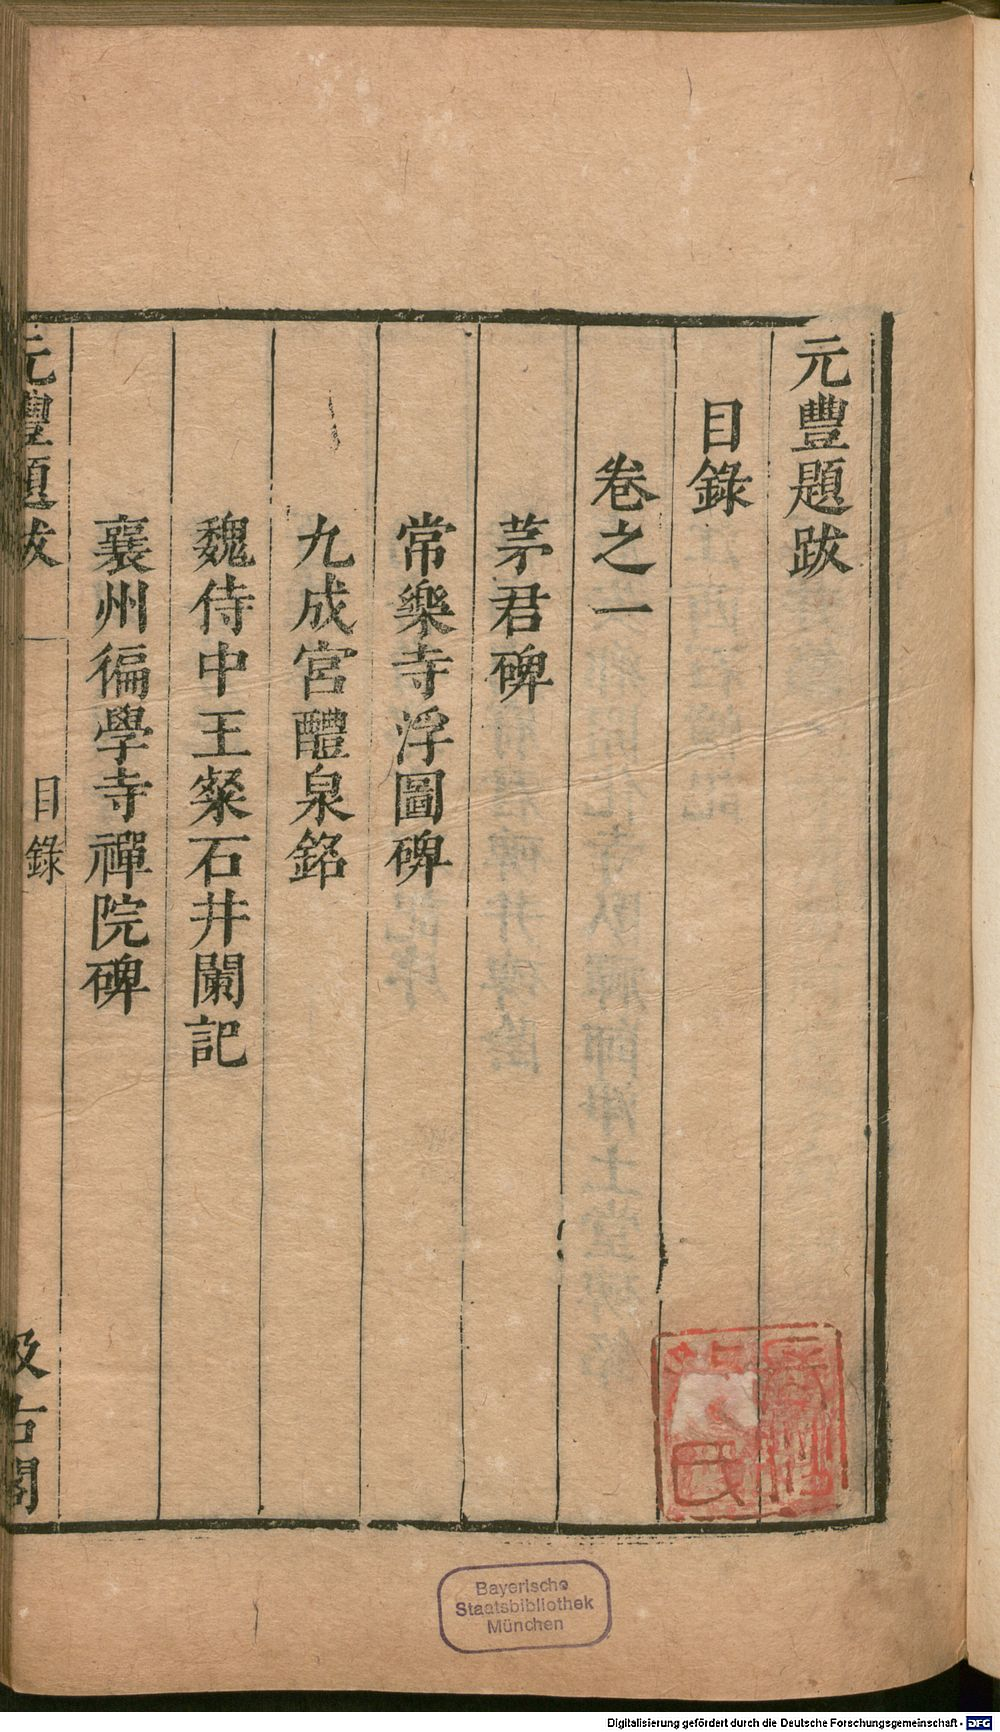 元豐題跋
目錄
卷之一
茅君碑
常樂寺浮圖碑
九成宮醴泉銘
魏侍中王粲石井闌記
襄州徧學寺禪院碑
元豐題跋 一 目錄 汲古閣
Bayerische
Staatsbibliothek
München
Digitalisierung gefördert durch die Deutsche Forschungsgemeinschaft - DFG